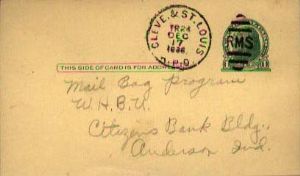 CLEVE. & ST. LOUIS
TR24
DEC
17
1936
R.P.O.
RMS
THIS SIDE OF CARD IS FOR ADDRESS
Mail Bag Program
W.H.B.U.
Citizens Bank Bldg.,
Anderson Ind.